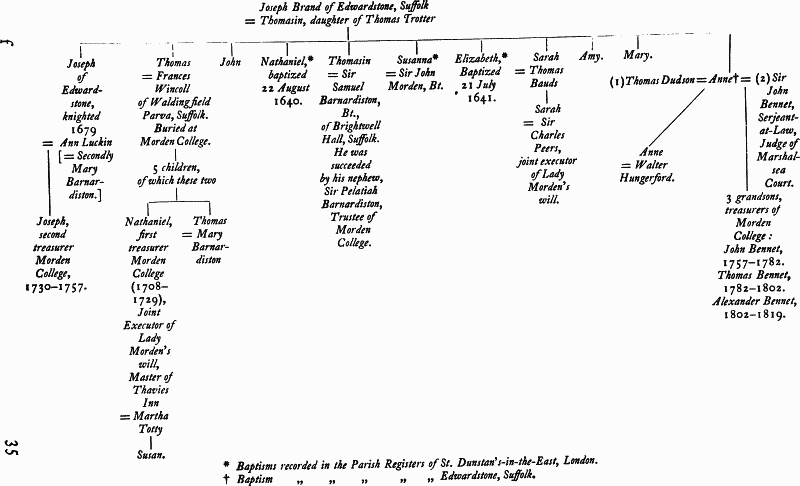 Joseph Brand of Edwardstone, Suffolk
= Thomasin, daughter of Thomas Trotter
Joseph
of
Edward-
stone,
knighted
1679
= Ann Luckin
[= Secondly
Mary
Barnar-
diston.]
Joseph,
second
treasurer
Morden
College,
1730–1757.
Thomas
= Frances
Wincoll
of Waldingfield
Parva, Suffolk.
Buried at
Morden College.
5 children,
of which these two
Nathaniel,
first
treasurer
Morden
College
(1708–
1729),
Joint
Executor of
Lady
Morden's
will,
Master of
Thavies
Inn
= Martha
Totty
Susan.
Thomas
= Mary
Barnar-
diston
John
Nathaniel,*
baptized
22 August
1640.
Thomasin
= Sir
Samuel
Barnardiston,
Bt.,
of Brightwell
Hall, Suffolk.
He was
succeeded
by his nephew,
Sir Pelatiah
Barnardiston,
Trustee of
Morden
College.
Susanna*
= Sir John
Morden, Bt.
Elizabeth,*
Baptized
21 July
1641.
Sarah
= Thomas
Bauds
Sarah
= Sir
Charles
Peers,
joint executor
of Lady
Morden's
will.
Amy.
Mary.
(1) Thomas Dudson = Anne† = (2) Sir
John
Bennet,
Serjeant-
at-Law,
Judge of
Marshal-
sea
Court.
Anne
= Walter
Hungerford.
3 grandsons,
treasurers of
Morden
College :
John Bennet,
1757–1782.
Thomas Bennet,
1782–1802.
Alexander Bennet,
1802–1819.
* Baptisms recorded in the Parish Registers of St. Dunstan's-in-the-East, London.
† Baptism „ „ „ „ „ Edwardstone, Suffolk.
f
35